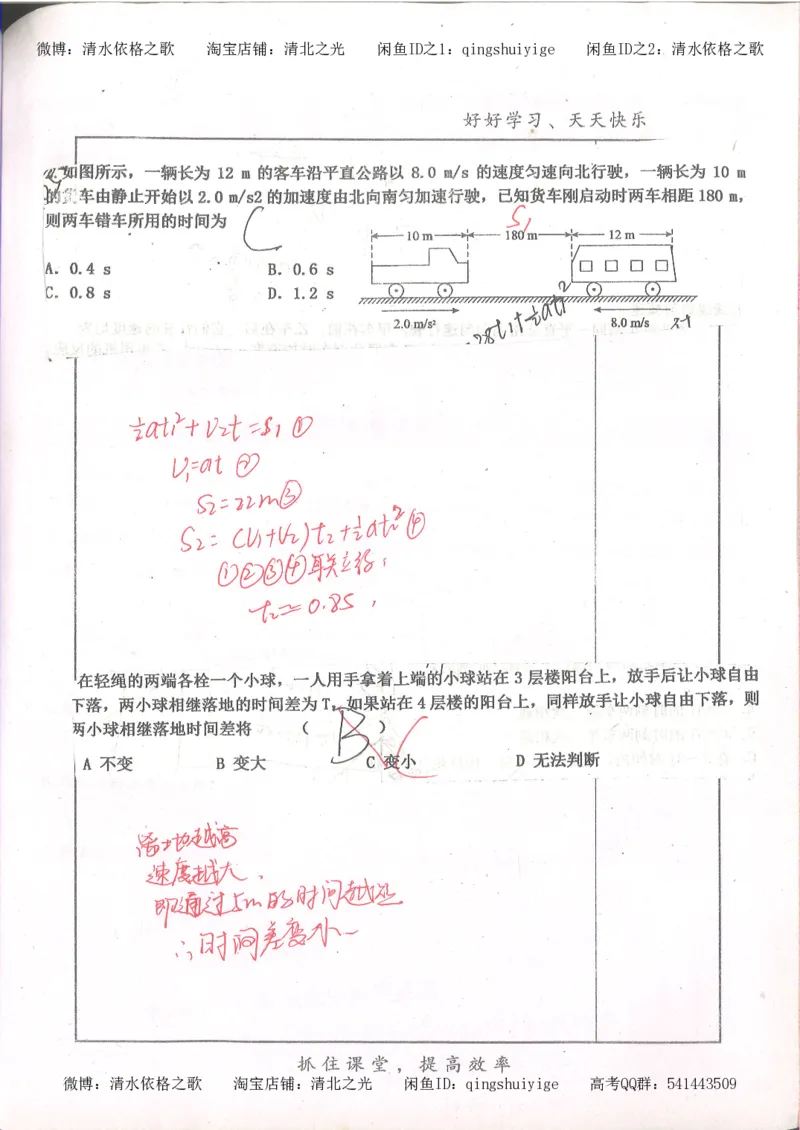 微博：清水依格之歌 淘宝店铺：清北之光 闲鱼ID之1：qingshuiyige 闲鱼ID之2：清水依格之歌
好好学习、天天快乐
如图所示，一辆长为 12 m 的客车沿平直公路以 8.0 m/s 的速度匀速向北行驶，一辆长为 10 m
的货车由静止开始以 2.0 m/s2 的加速度由北向南匀加速行驶，已知货车刚启动时两车相距 180 m，
则两车错车所用的时间为 C
S₁
10 m 180 m 12 m
A. 0.4 s B. 0.6 s
C. 0.8 s D. 1.2 s
2.0 m/s² 8.0 m/s
½at₁²+V₂t=S₁ ①
V₁=at ②
S₂=22m③
S₂=(V₁+V₂)t₂+½at₂² ④
①②③④联立得：
t₂=0.8S，
在轻绳的两端各栓一个小球，一人用手拿着上端的小球站在 3 层楼阳台上，放手后让小球自由
下落，两小球相继落地的时间差为 T。如果站在 4 层楼的阳台上，同样放手让小球自由下落，则
两小球相继落地时间差将 （ B ） C
A 不变 B 变大 C 变小 D 无法判断
离地越高
速度越大，
即通过5m的时间越短
∴时间差变小
抓住课堂，提高效率
微博：清水依格之歌 淘宝店铺：清北之光 闲鱼ID：qingshuiyige 高考QQ群：541443509